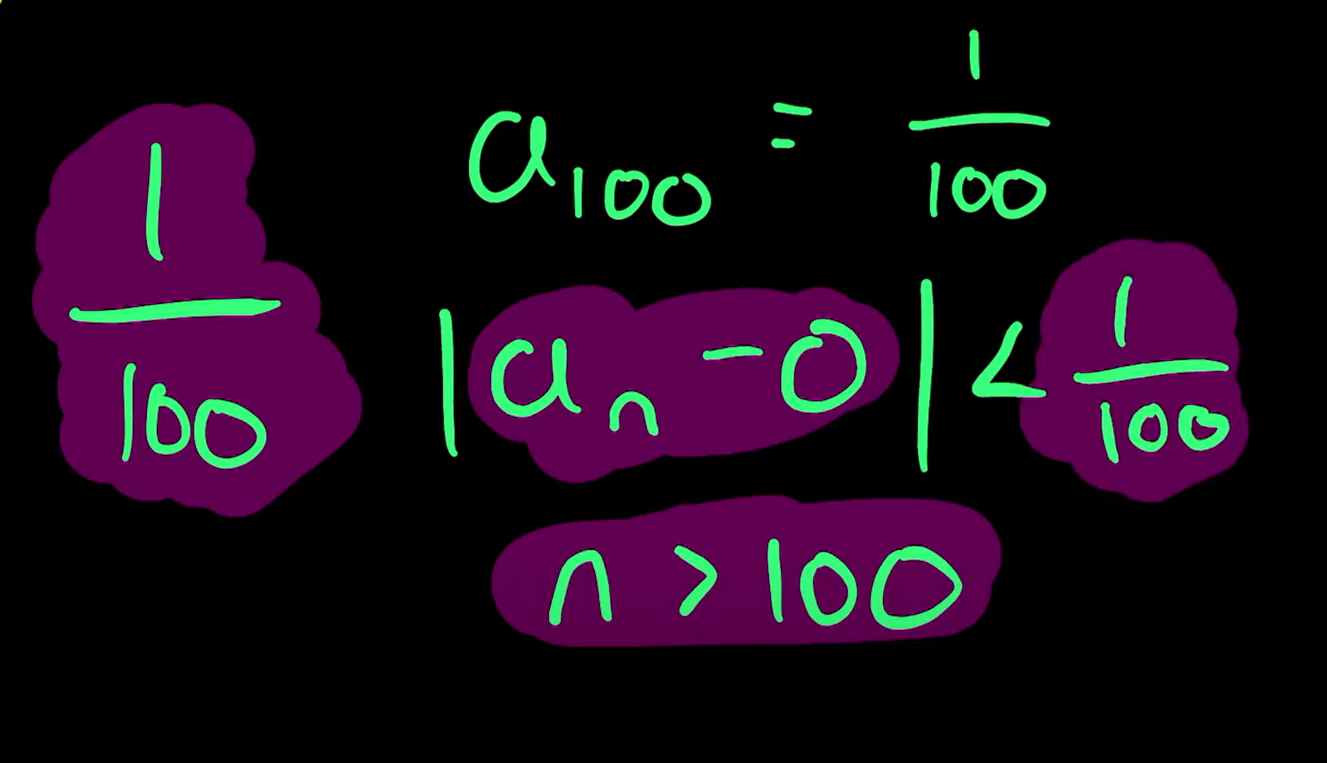 1/100
a₁₀₀ = 1/100
|aₙ - 0| < 1/100
n > 100